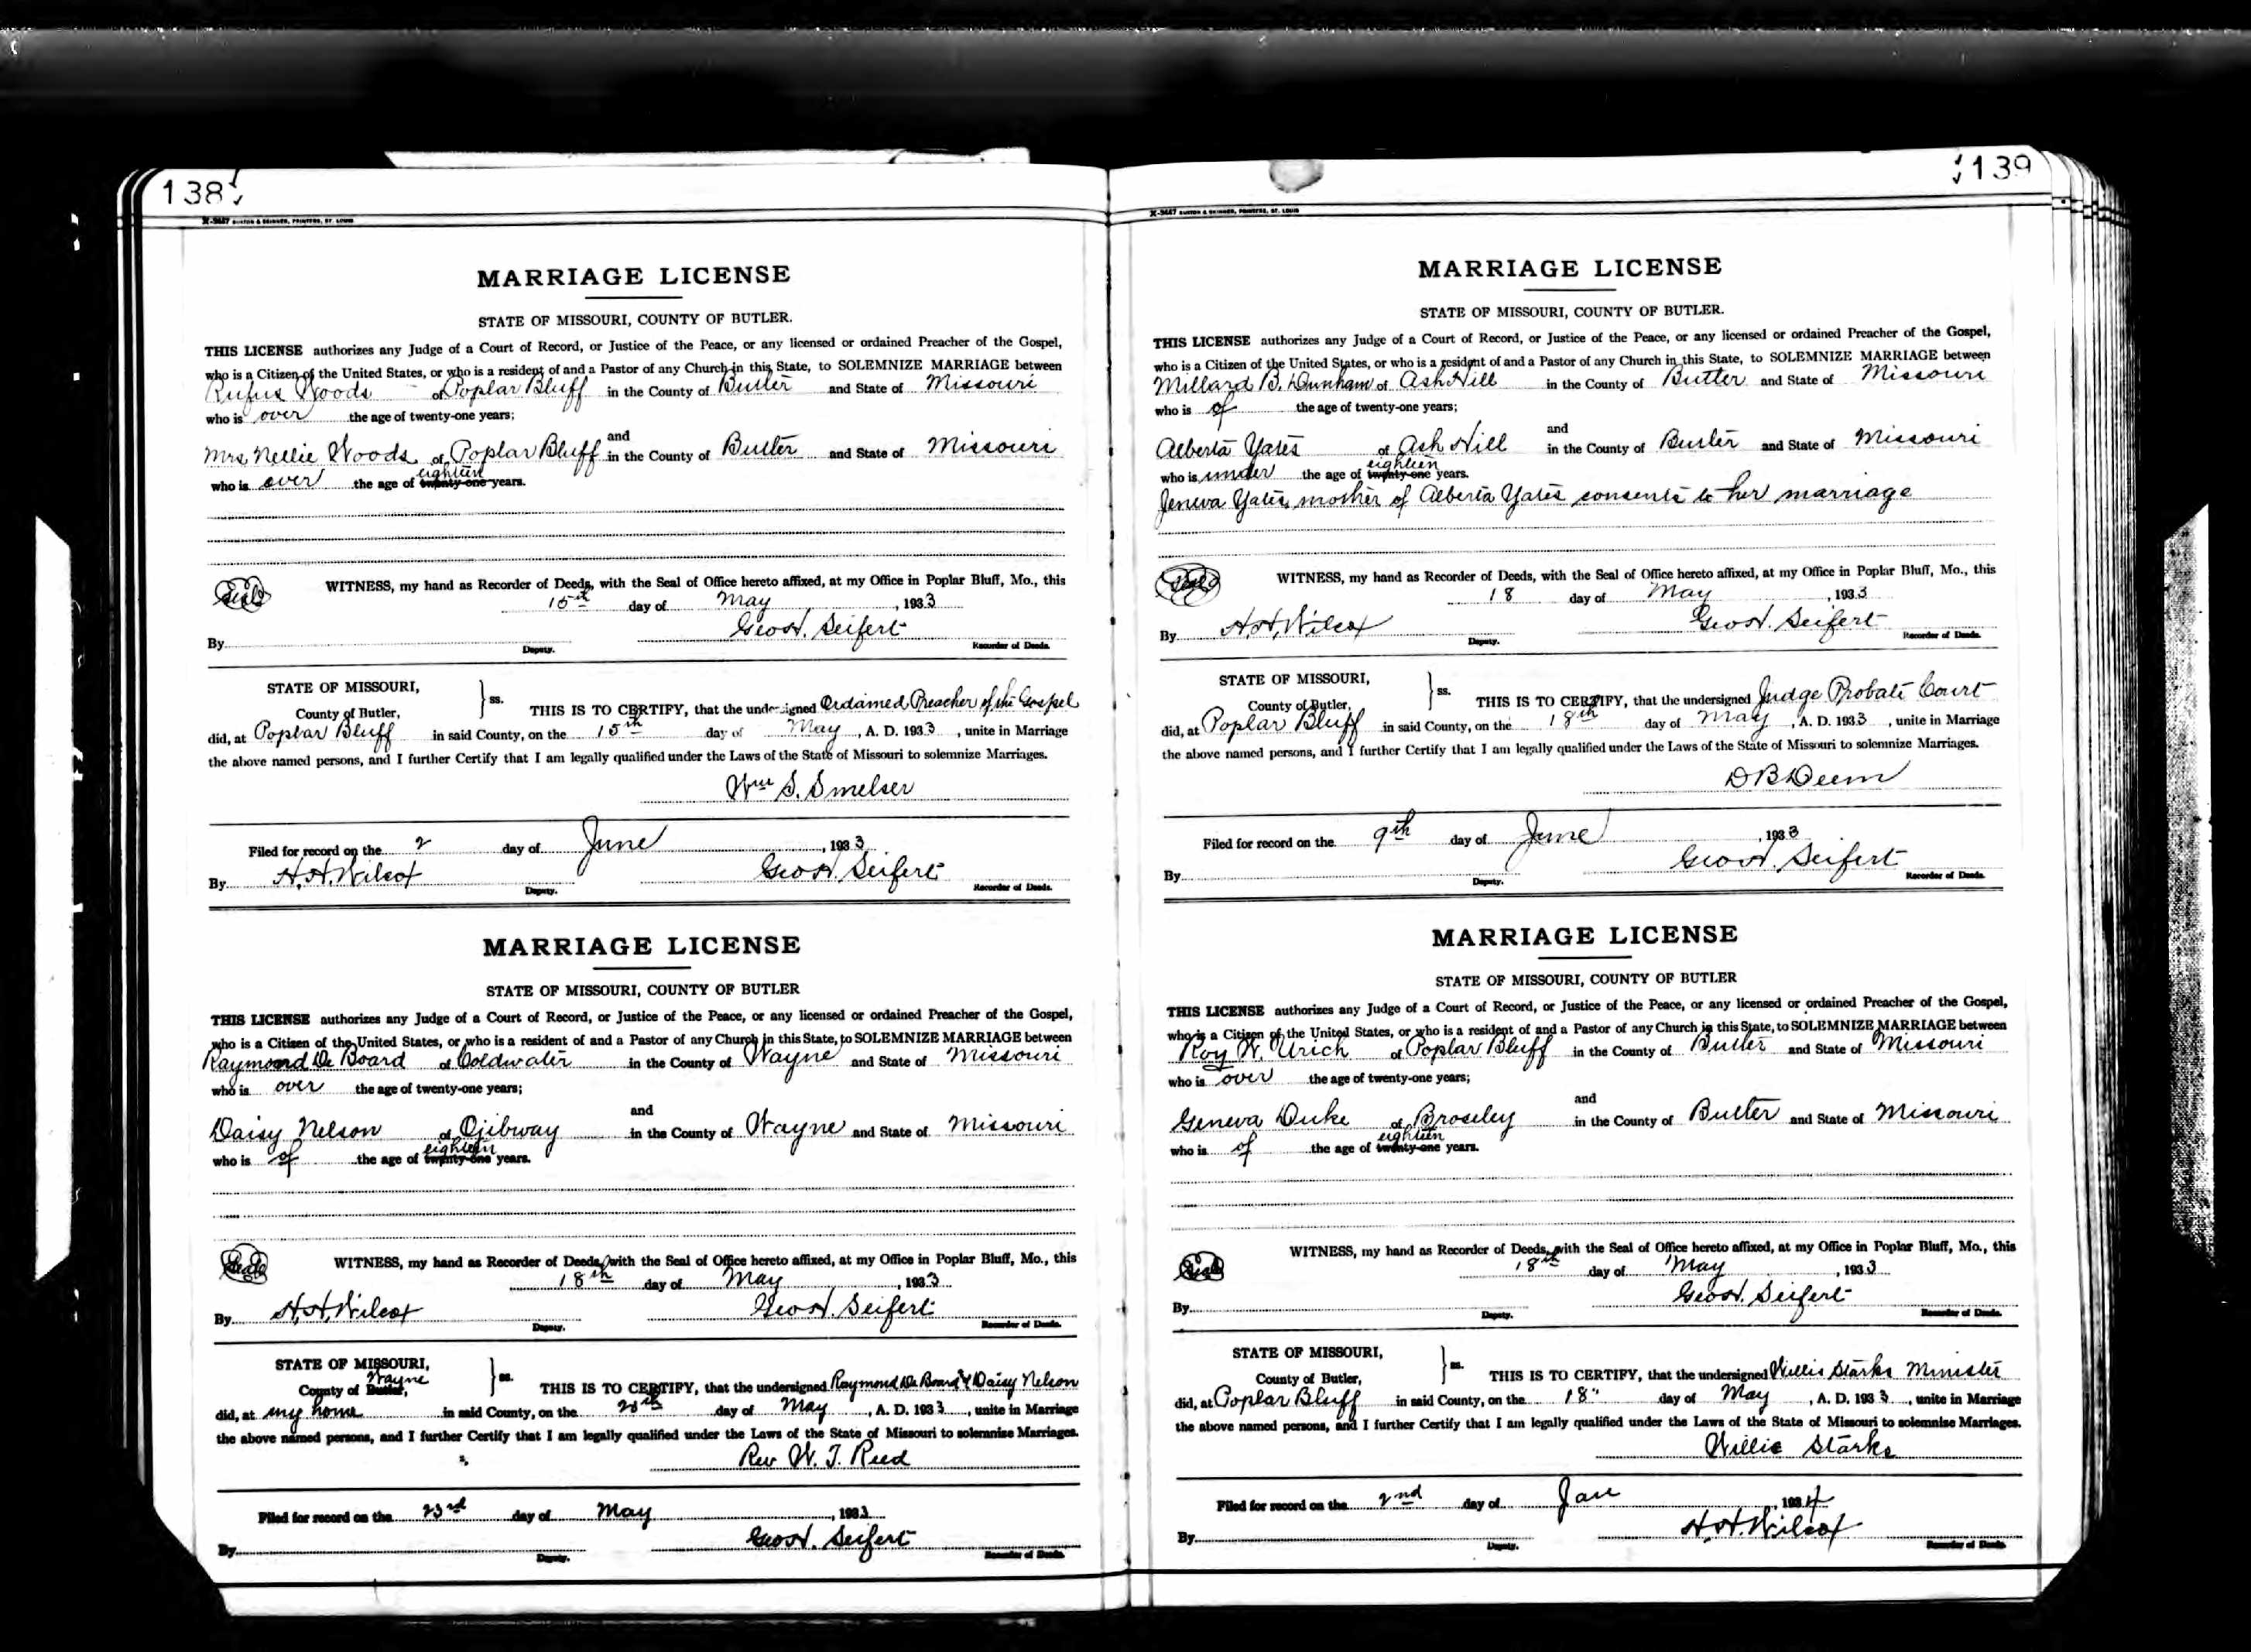 138
X-3667 BUXTON & SKINNER, PRINTERS, ST. LOUIS
MARRIAGE LICENSE
STATE OF MISSOURI, COUNTY OF BUTLER.
THIS LICENSE authorizes any Judge of a Court of Record, or Justice of the Peace, or any licensed or ordained Preacher of the Gospel,
who is a Citizen of the United States, or who is a resident of and a Pastor of any Church in this State, to SOLEMNIZE MARRIAGE between
Rufus Woods of Poplar Bluff in the County of Butler and State of Missouri
who is over the age of twenty-one years;
and
Mrs Nellie Woods of Poplar Bluff in the County of Butler and State of Missouri
eighteen
who is over the age of twenty-one years.
Seal WITNESS, my hand as Recorder of Deeds, with the Seal of Office hereto affixed, at my Office in Poplar Bluff, Mo., this
15th day of May, 1933
Geo H. Seifert
By Deputy. Recorder of Deeds.
STATE OF MISSOURI,
County of Butler, } ss. THIS IS TO CERTIFY, that the undersigned Ordained Preacher of the Gospel
did, at Poplar Bluff in said County, on the 15th day of May, A. D. 1933, unite in Marriage
the above named persons, and I further Certify that I am legally qualified under the Laws of the State of Missouri to solemnize Marriages.
Wm S. Smelser
Filed for record on the 2 day of June, 1933
By H.H. Wilcox Deputy. Geo H. Seifert Recorder of Deeds.
MARRIAGE LICENSE
STATE OF MISSOURI, COUNTY OF BUTLER
THIS LICENSE authorizes any Judge of a Court of Record, or Justice of the Peace, or any licensed or ordained Preacher of the Gospel,
who is a Citizen of the United States, or who is a resident of and a Pastor of any Church in this State, to SOLEMNIZE MARRIAGE between
Raymond De Board of Coldwater in the County of Wayne and State of Missouri
who is over the age of twenty-one years;
and
Daisy Nelson of Ojibway in the County of Wayne and State of Missouri
eighteen
who is of the age of twenty-one years.
Seal WITNESS, my hand as Recorder of Deeds, with the Seal of Office hereto affixed, at my Office in Poplar Bluff, Mo., this
18th day of May, 1933
By H.H. Wilcox Deputy. Geo H. Seifert Recorder of Deeds.
STATE OF MISSOURI,
Wayne
County of Butler, } ss. THIS IS TO CERTIFY, that the undersigned Raymond De Board & Daisy Nelson
did, at my home in said County, on the 20th day of May, A. D. 1933, unite in Marriage
the above named persons, and I further Certify that I am legally qualified under the Laws of the State of Missouri to solemnize Marriages.
Rev W. T. Reed
Filed for record on the 23rd day of May, 1933
Geo H. Seifert
By Deputy. Recorder of Deeds.
139
X-3667 BUXTON & SKINNER, PRINTERS, ST. LOUIS
MARRIAGE LICENSE
STATE OF MISSOURI, COUNTY OF BUTLER.
THIS LICENSE authorizes any Judge of a Court of Record, or Justice of the Peace, or any licensed or ordained Preacher of the Gospel,
who is a Citizen of the United States, or who is a resident of and a Pastor of any Church in this State, to SOLEMNIZE MARRIAGE between
Millard B. Dunham of Ash Hill in the County of Butler and State of Missouri
who is of the age of twenty-one years;
and
Alberta Yates of Ash Hill in the County of Butler and State of Missouri
eighteen
who is under the age of twenty-one years.
Jeneva Yates, mother of Alberta Yates consents to her marriage
Seal WITNESS, my hand as Recorder of Deeds, with the Seal of Office hereto affixed, at my Office in Poplar Bluff, Mo., this
18 day of May, 1933
By H.H. Wilcox Deputy. Geo H. Seifert Recorder of Deeds.
STATE OF MISSOURI,
County of Butler, } ss. THIS IS TO CERTIFY, that the undersigned Judge Probate Court
did, at Poplar Bluff in said County, on the 18th day of May, A. D. 1933, unite in Marriage
the above named persons, and I further Certify that I am legally qualified under the Laws of the State of Missouri to solemnize Marriages.
D B Deem
Filed for record on the 9th day of June, 1933
Geo H. Seifert
By Deputy. Recorder of Deeds.
MARRIAGE LICENSE
STATE OF MISSOURI, COUNTY OF BUTLER
THIS LICENSE authorizes any Judge of a Court of Record, or Justice of the Peace, or any licensed or ordained Preacher of the Gospel,
who is a Citizen of the United States, or who is a resident of and a Pastor of any Church in this State, to SOLEMNIZE MARRIAGE between
Roy W. Urich of Poplar Bluff in the County of Butler and State of Missouri
who is over the age of twenty-one years;
and
Geneva Duke of Broseley in the County of Butler and State of Missouri
eighteen
who is of the age of twenty-one years.
Seal WITNESS, my hand as Recorder of Deeds, with the Seal of Office hereto affixed, at my Office in Poplar Bluff, Mo., this
18th day of May, 1933
Geo H. Seifert
By Deputy. Recorder of Deeds.
STATE OF MISSOURI,
County of Butler, } ss. THIS IS TO CERTIFY, that the undersigned Willis Starks Minister
did, at Poplar Bluff in said County, on the 18" day of May, A. D. 1933, unite in Marriage
the above named persons, and I further Certify that I am legally qualified under the Laws of the State of Missouri to solemnize Marriages.
Willie Starks
Filed for record on the 2nd day of Jan, 1934
H.H. Wilcox
By Deputy. Recorder of Deeds.